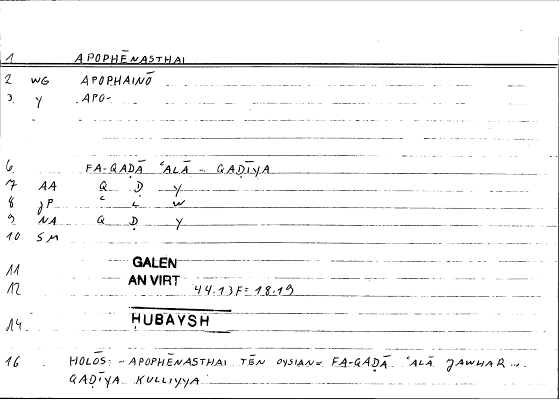 1 APOPHĒNASTHAI
2 WG APOPHAINŌ
3. Y APO-
-
6. FA-QAḌĀ ʿALĀ .. QAḌĪYA
7 AA Q Ḍ Y
8 JP ʿ L W
9. NA Q Ḍ Y
10 SM
11 GALEN
12 AN VIRT 44.13F = 18.19
14. ḤUBAYSH
16 HOLŌS: .. APOPHĒNASTHAI TĒN OYSIAN = FA-QAḌĀ ʿALĀ JAWHAR ...
QAḌĪYA KULLIYYA